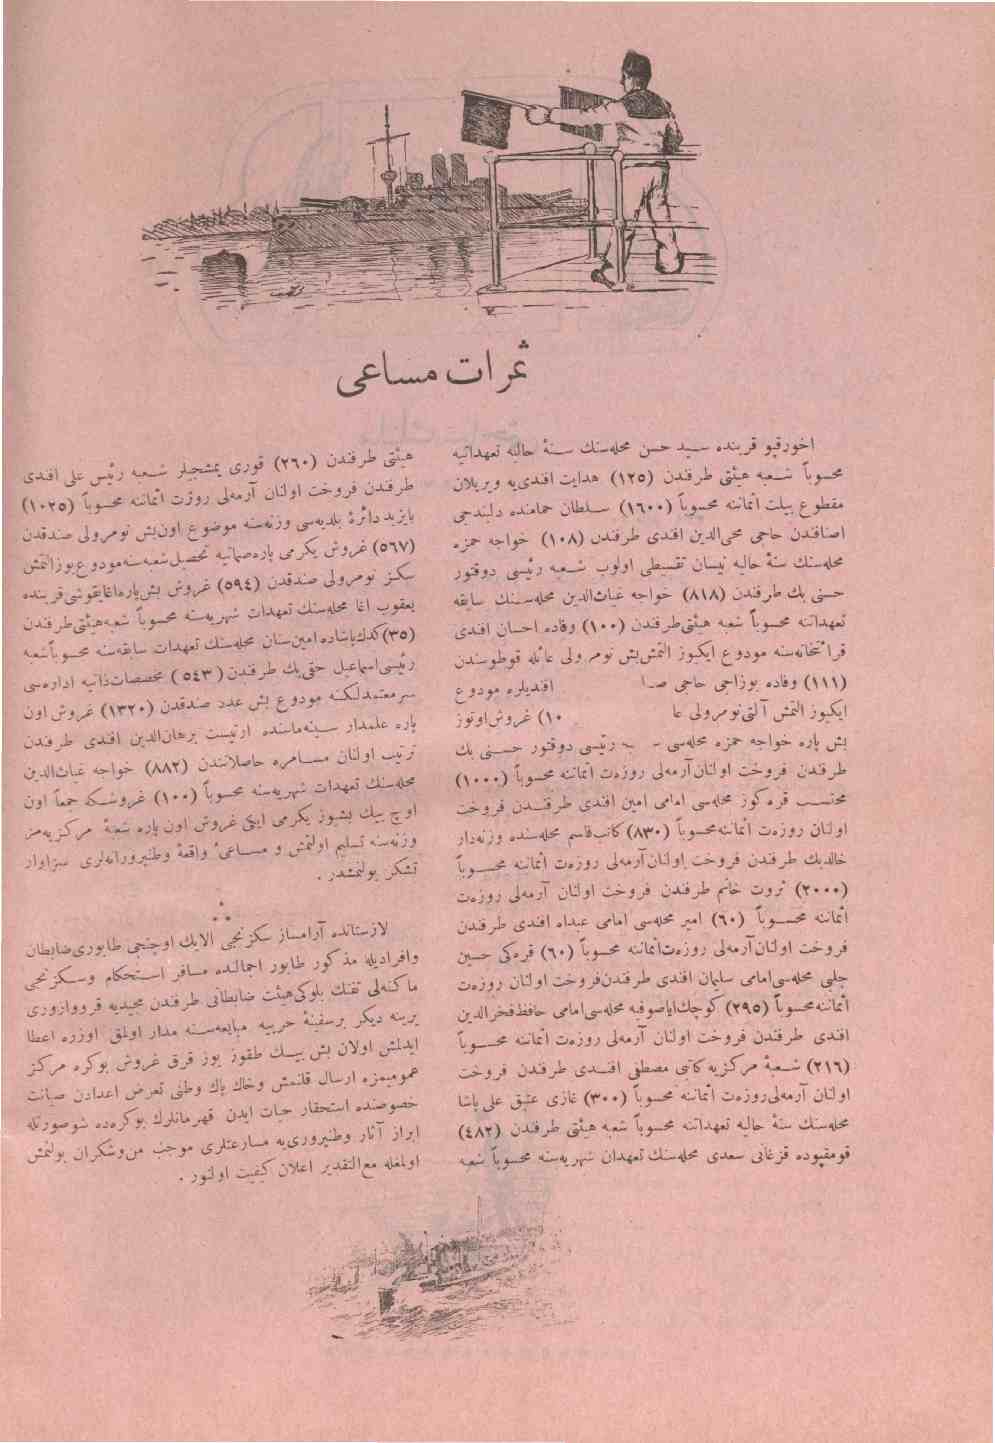 ثمرات مساعی
اخورقپو قربنده سید حسن محله‌سنك سنهٔ حالیه تعهداتیه
محسوباً شعبه هیئتی طرفندن (١٢٥) هدایت افندی‌یه ویریلان
مقطوع بیلت اثماننه محسوباً (١٦٠٠) سلطان حمامنده دلبندجی
اصنافندن حاجی محی‌الدین افندی طرفندن (١٠٨) خواجه حمزه
محله‌سنك سنهٔ حالیه نیسان تقسیطی اولوب شعبه رئیسی دوقتور
حسنی بك طرفندن (٨١٨) خواجه غیاث‌الدین محله‌سنك سابقه
تعهداتنه محسوباً شعبه هیئتی طرفندن (١٠٠) وفاده احسان افندی
قرائتخانه‌سنه مودوع ایکیوز التمش بش نومرولی عائله قوطوسندن
(١١١) وفاده بوزاجی حاجی افندیلره مودوع
ایکیوز التمش آلتی نومرولی ١٠) غروش اوتوز
بش پاره خواجه حمزه محله‌سی رئیسی دوقتور حسنی بك
طرفندن فروخت اولنان آرمه‌لی روزه‌ت اثماننه محسوباً (١٠٠٠)
محتسب قره‌کوز محله‌سی امامی امین افندی طرفندن فروخت
اولنان روزه‌ت اثماننه محسوباً (٨٣٠) کاتب قاسم محله‌سنده وزنه‌دار
خالد بك طرفندن فروخت اولنان آرمه‌لی روزه‌ت اثماننه محسوباً
(٢٠٠٠) ثروت خانم طرفندن فروخت اولنان آرمه‌لی روزه‌ت
اثماننه محسوباً (٦٠) امیر محله‌سی امامی عبداه افندی طرفندن
فروخت اولنان آرمه‌لی روزه‌ت اثماننه محسوباً (٦٠) قره‌کی حسین
چلبی محله‌سی امامی سلیمان افندی طرفندن فروخت اولنان روزه‌ت
اثماننه محسوباً (٢٩٥) کوچك ایاصوفیه محله‌سی امامی حافظ فخرالدین
افندی طرفندن فروخت اولنان آرمه‌لی روزه‌ت اثماننه محسوباً
(٢١٦) شعبهٔ مرکزیه کاتبی مصطفی افندی طرفندن فروخت
اولنان آرمه‌لی روزه‌ت اثماننه محسوباً (٣٠٠) غازی عتیق علی پاشا
محله‌سنك سنهٔ حالیه تعهداتنه محسوباً شعبه هیئتی طرفندن (٤٨٢)
قومقپوده قزغانی سعدی محله‌سنك تعهدان شهریه‌سنه محسوباً شعبه
هیئتی طرفندن (٢٦٠) قوری یمشجیلر شعبه رئیس علی افندی
طرفندن فروخت اولنان آرمه‌لی روزت اثماننه محسوباً (١٠٢٥)
بایزید دائرهٔ بلدیه‌سی وزنه‌سنه موضوع اون بش نومرولی صندقدن
(٥٦٧) غروش یکرمی پاره تحصیل شعبه‌سنه مودوع یوز التمش
سکز نومرولی صندقدن (٥٩٤) غروش بش پاره قربنده
یعقوب اغا محله‌سنك تعهدات شهریه‌سنه محسوباً شعبه هیئتی طرفندن
(٣٥) کدك پاشاده امین سنان محله‌سنك تعهدات سابقه‌سنه محسوباً شعبه
رئیسی اسماعیل حقی بك طرفندن (٥٤٣) مخصصات ذاتیه اداره‌سی
سر معتمدلکنه مودوع بش عدد صندقدن (١٣٢٠) غروش اون
پاره علمدار سینه‌ماسنده ارتیست برهان‌الدین افندی طرفندن
ترتیب اولنان مسامره حاصلاتندن (٨٨٢) خواجه غیاث‌الدین
محله‌سنك تعهدات شهریه‌سنه محسوباً (١٠٠) غروشكه جمعاً اون
اوچ بیك بشیوز یکرمی ایکی غروش اون پاره شعبهٔ مرکزیه‌مز
وزنه‌سنه تسلیم اولنمش و مساعیٔ واقعهٔ وطنپرورانه‌لری سزاوار
تشکر بولنمشدر .
لازستانده آرامساز سکزنجی آلایك اوچنجی طابوری ضابطان
وافرادیله مذکور طابور اجمالنده مسافر استحکام وسکزنجی
ماکنه‌لی تفنك بلوکی هیئت ضابطانی طرفندن مجیدیه قرووازوری
یرینه دیکر بر سفینهٔ حربیه مبایعه‌سنه مدار اولمق اوزره اعطا
ایدلمش اولان بش بیك طقوز یوز قرق غروش بوکره مرکز
عمومیمزه ارسال قلنمش وخاك پاك وطنی تعرض اعدادن صیانت
خصوصنده استحقار حیات ایدن قهرمانلرك بوکره‌ده شوصورتله
ابراز آثار وطنپروری‌یه مسارعتلری موجب من وشکران بولنمش
اولمغله مع‌التقدیر اعلان کیفیت اولنور .